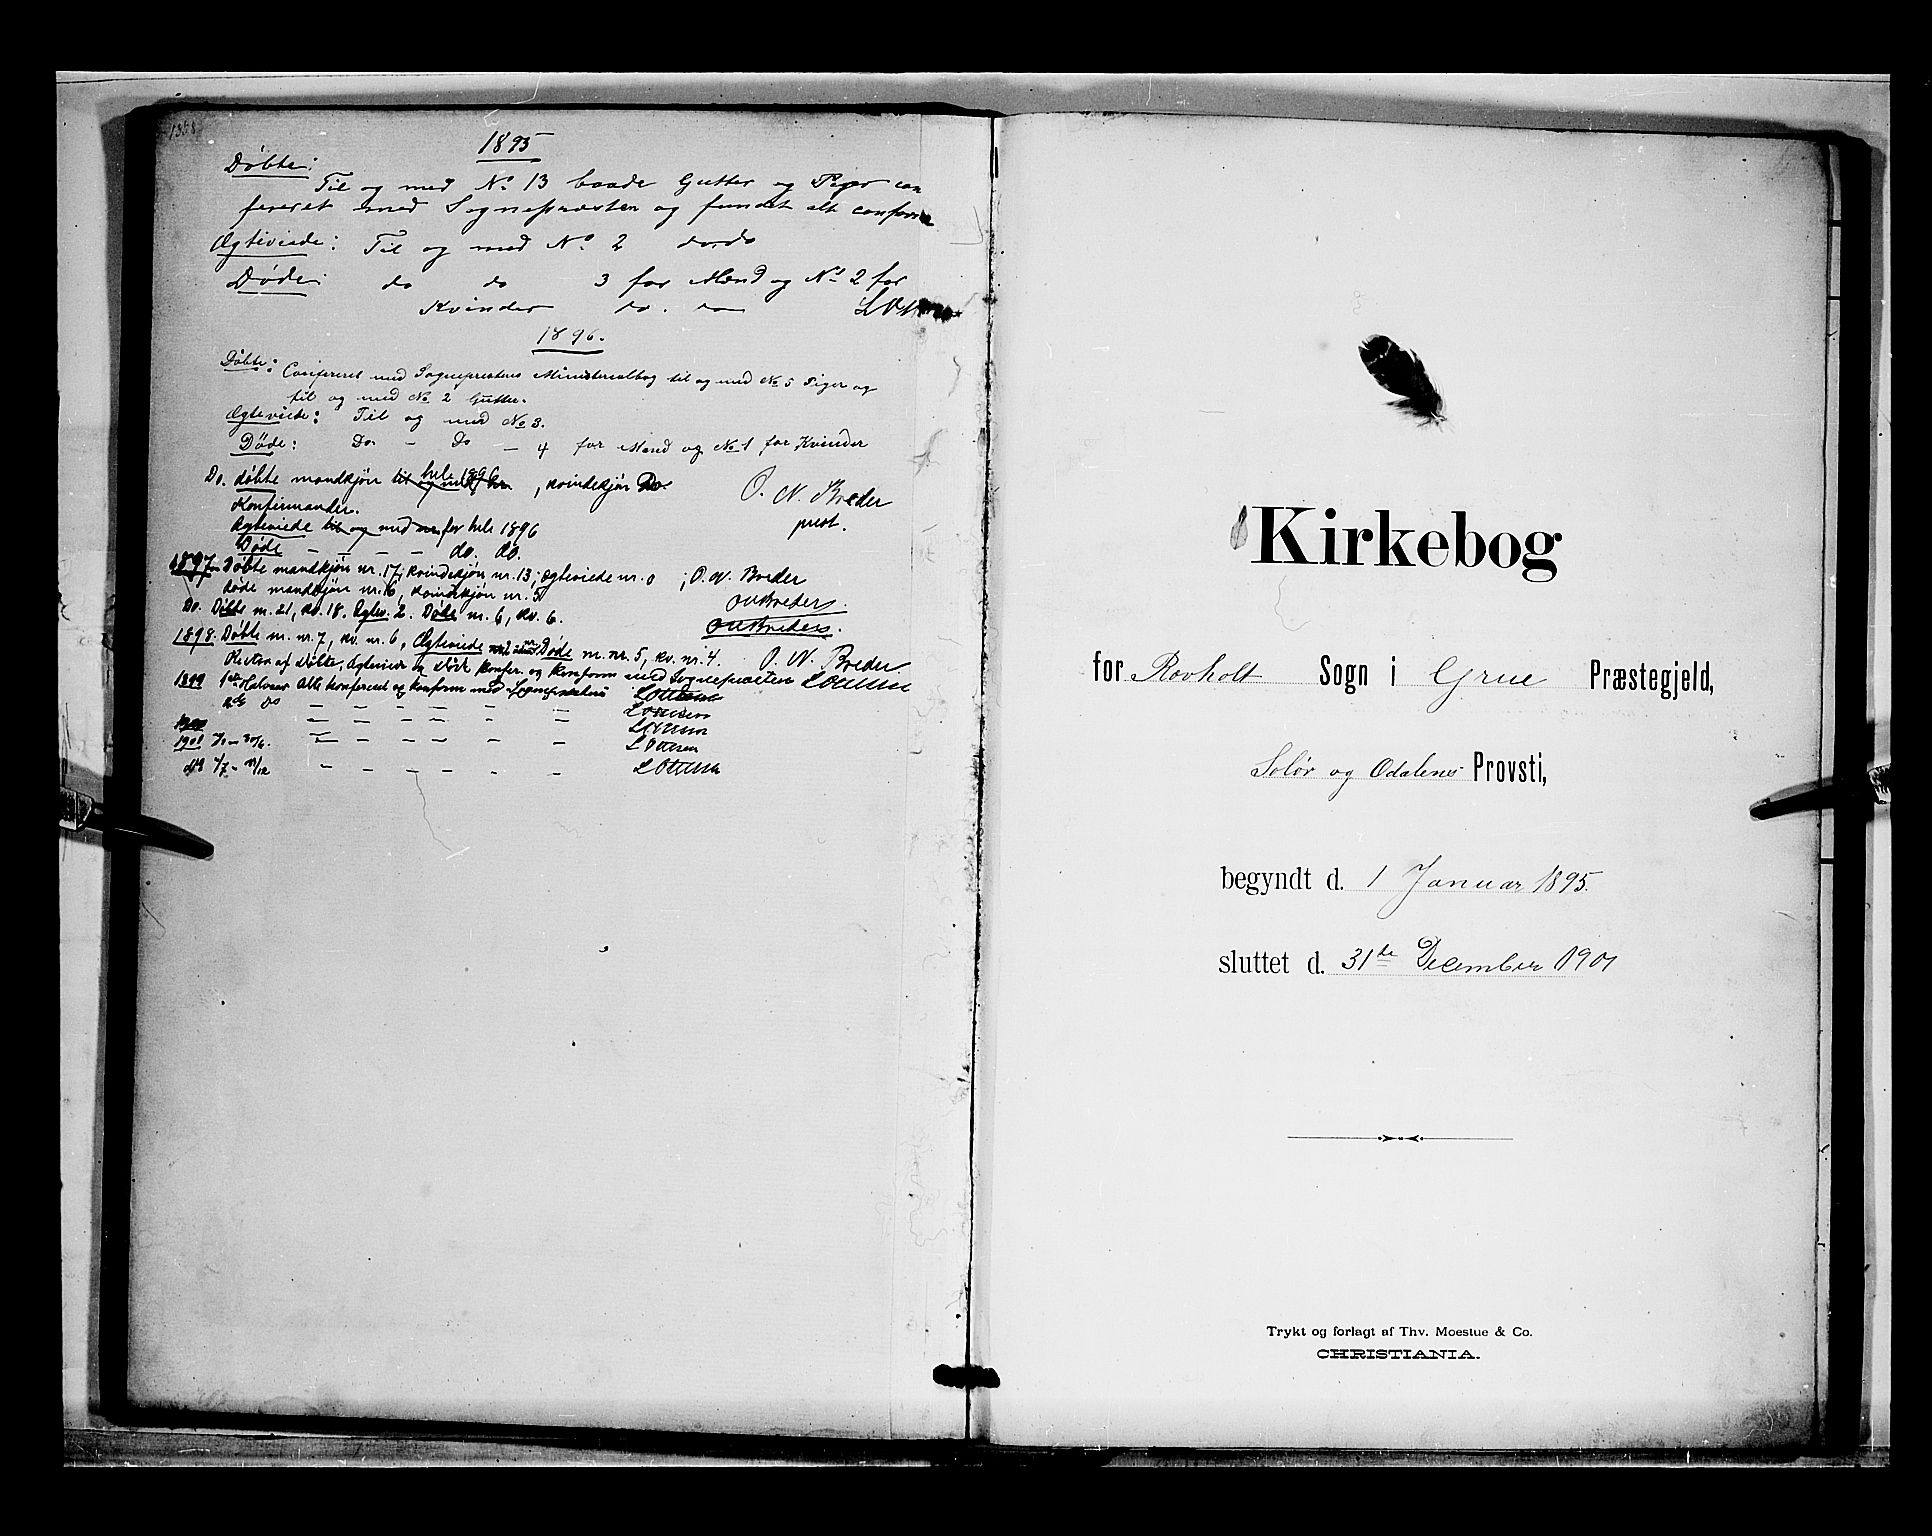 1895
Døbte:
Til og med No 13 baade Gutter og Piger con
fereret med Sognepræsten og fundet alt conform
Ægteviede: Til og med No 2 do. do
Døde: do do 3 for Mænd og No 2 for
Kvinder do. do
1896.
Døbte: Confereret med Sogneprestens Ministerialbog til og med No 5 Piger og
til og med No. 2 Gutter.
Ægteviede: Til og med No 3.
Døde: Do. - Do - 4 for Mænd og No 1 for Kvinder
Do. døbte mandkjøn hele 1896, kvindekjøn Do. O. N. Breder
Konfirmander. prest.
Ægteviede til og med for hele 1896
Døde - - - - do. do.
1897 Døbte mandkjøn nr. 17, kvindekjøn nr. 13; ægteviede nr. 0; O. N. Breder
døde mandkjøn nr. 6, kvindekjøn nr. 5
Do. Døbte m. 21, kv. 18. Ægtev. 2. Døde m. 6, kv. 6.
1898. Døbte m. nr. 7, kv. nr. 6, Ægteviede Døde m. nr. 5, kv. nr. 4. O. N. Breder
Resten af Døbte, Ægteviede og Døde konfer. og konform med Sognepræsten L Ottesen
1899 1ste Halvaar Alle konfereret og konform med Sognepræstens L Ottesen
2det Do - - - - - - L Ottesen
1900 - - - - - - L Ottesen
1901 1/1 - 30/6. - - - - - - L Ottesen
1/7 - 31/12 - - - - - - L Ottesen
Kirkebog
for Rovholt Sogn i Grue Præstegjeld,
Solør og Odalens Provsti,
begyndt d. 1 Januar 1895.
sluttet d. 31te December 1901
Trykt og forlagt af Thv. Moestue & Co.
CHRISTIANIA.